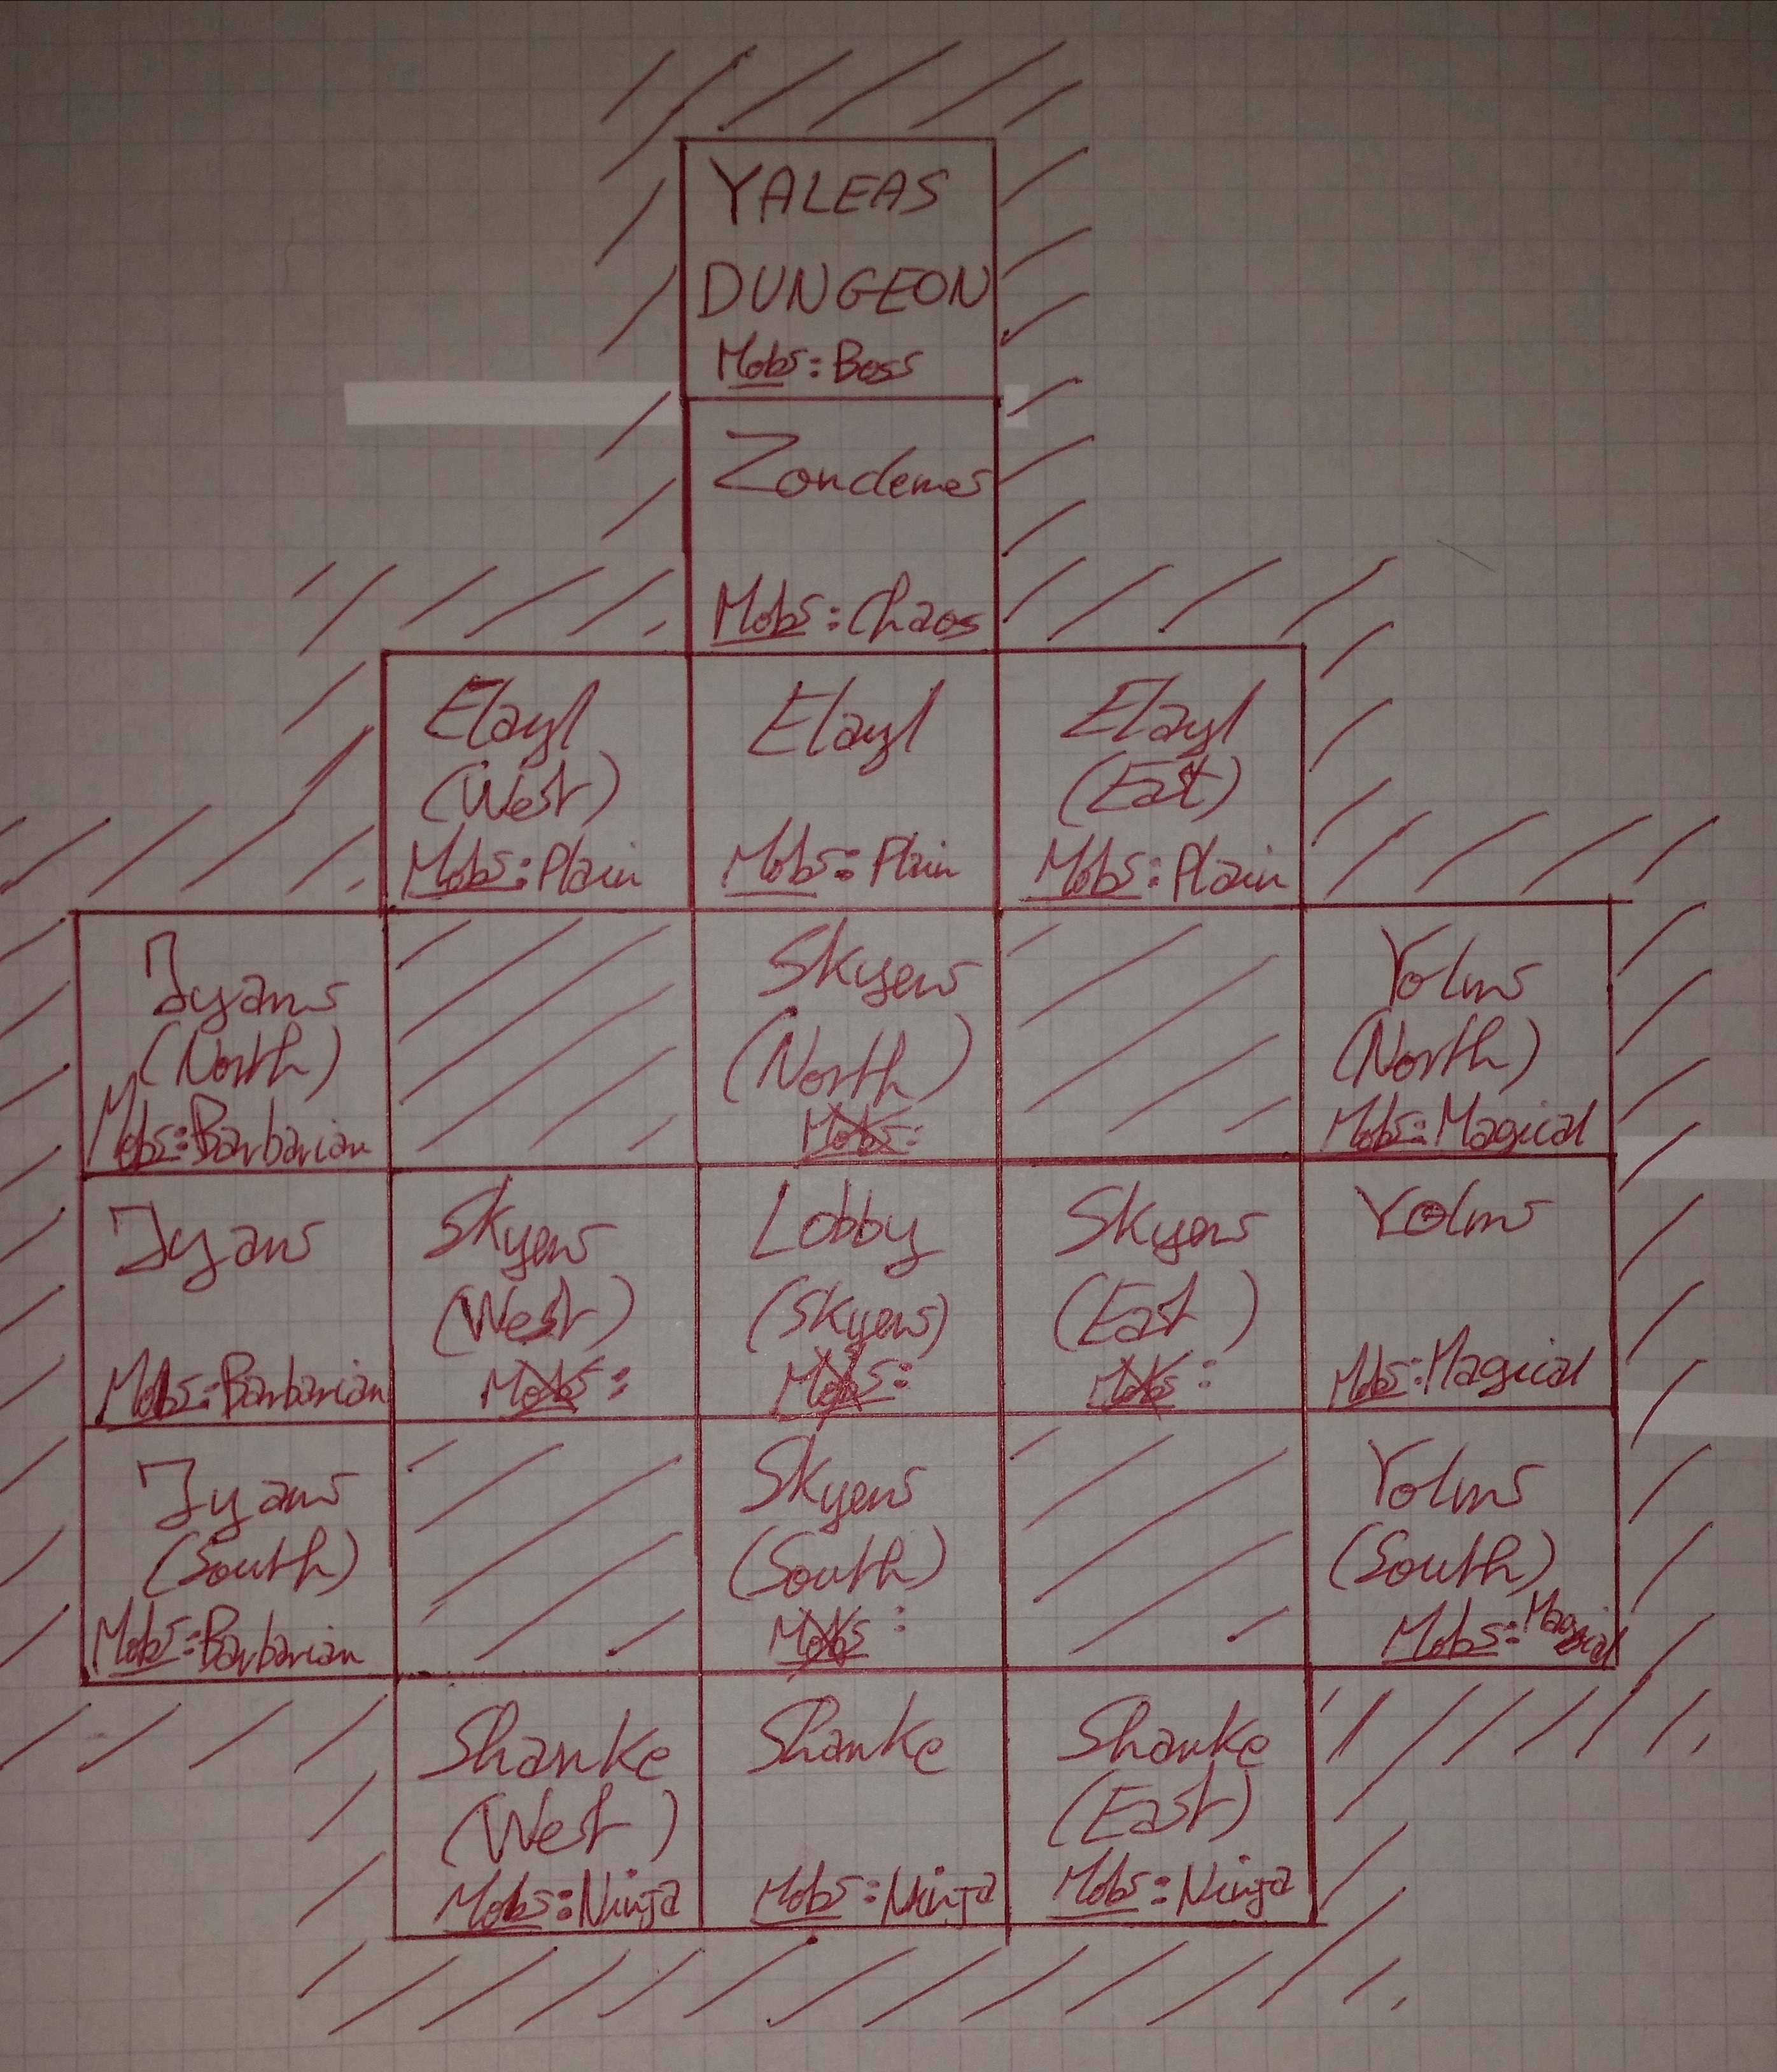 YALEAS
DUNGEON
Mobs: Boss
Zondemes
Mobs: Chaos
Elayl
(West)
Mobs: Plain
Elayl
Mobs: Plain
Elayl
(East)
Mobs: Plain
Jyans
(North)
Mobs: Barbarian
Skyens
(North)
Mobs:
Yolms
(North)
Mobs: Magical
Jyans
Mobs: Barbarian
Skyens
(West)
Mobs:
Lobby
(Skyens)
Mobs:
Skyens
(East)
Mobs:
Yolms
Mobs: Magical
Jyans
(South)
Mobs: Barbarian
Skyens
(South)
Mobs:
Yolms
(South)
Mobs: Magical
Shanke
(West)
Mobs: Ninja
Shanke
Mobs: Ninja
Shanke
(East)
Mobs: Ninja